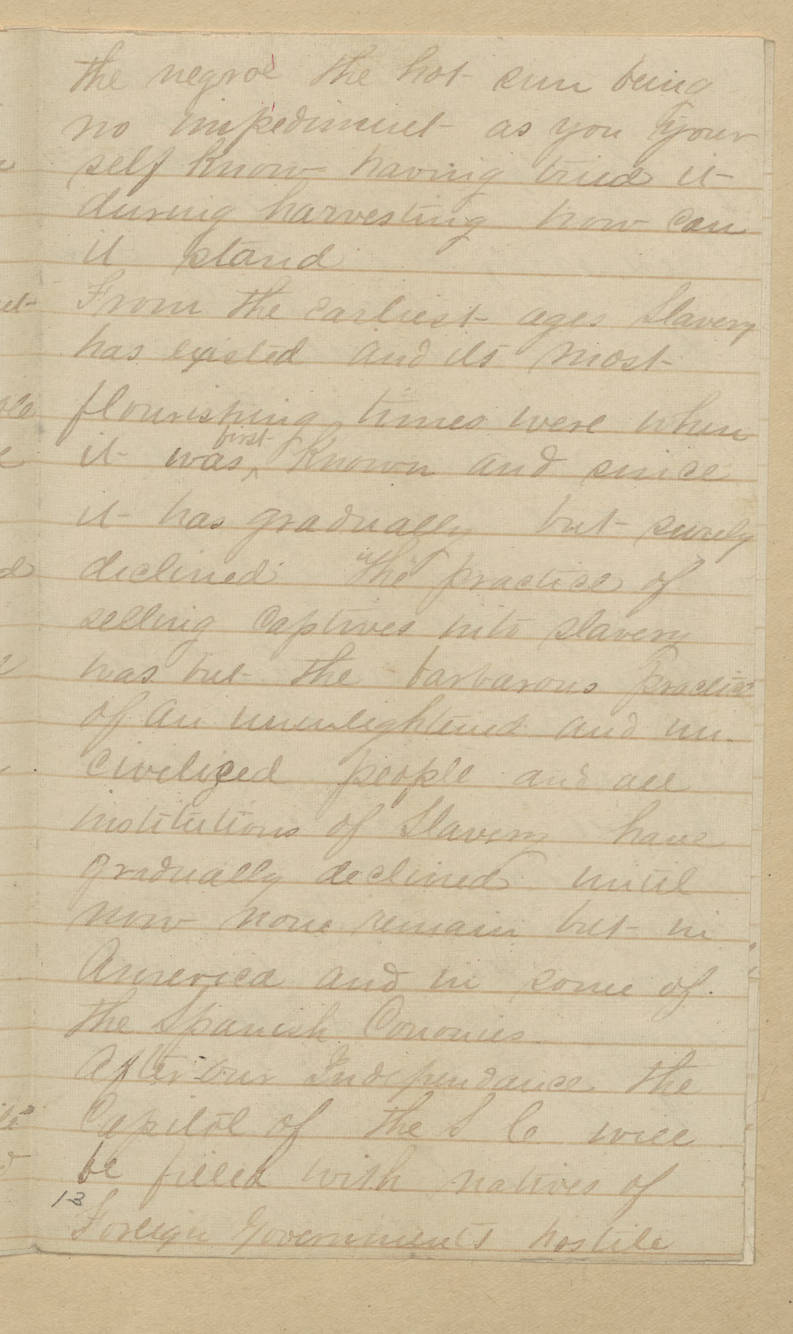 the negroe the hot sun being
no impediment as you your
self know having tried it
during harvesting how can
it stand
From the earliest ages Slavery
has existed and its most
flourishing times were when
it was first known and since
it has gradually but surely
declined "The practice of
selling captives into slavery
was but the barbarous practice
of an unenlightened and un-
civelized people and all
institutions of Slavery have
gradually declined until
now none remain but in
America and in some of
the Spanish Conomies
After our Independance the
Capitol of the S C will
be filled with natives of
13
Foreign Governments hostile